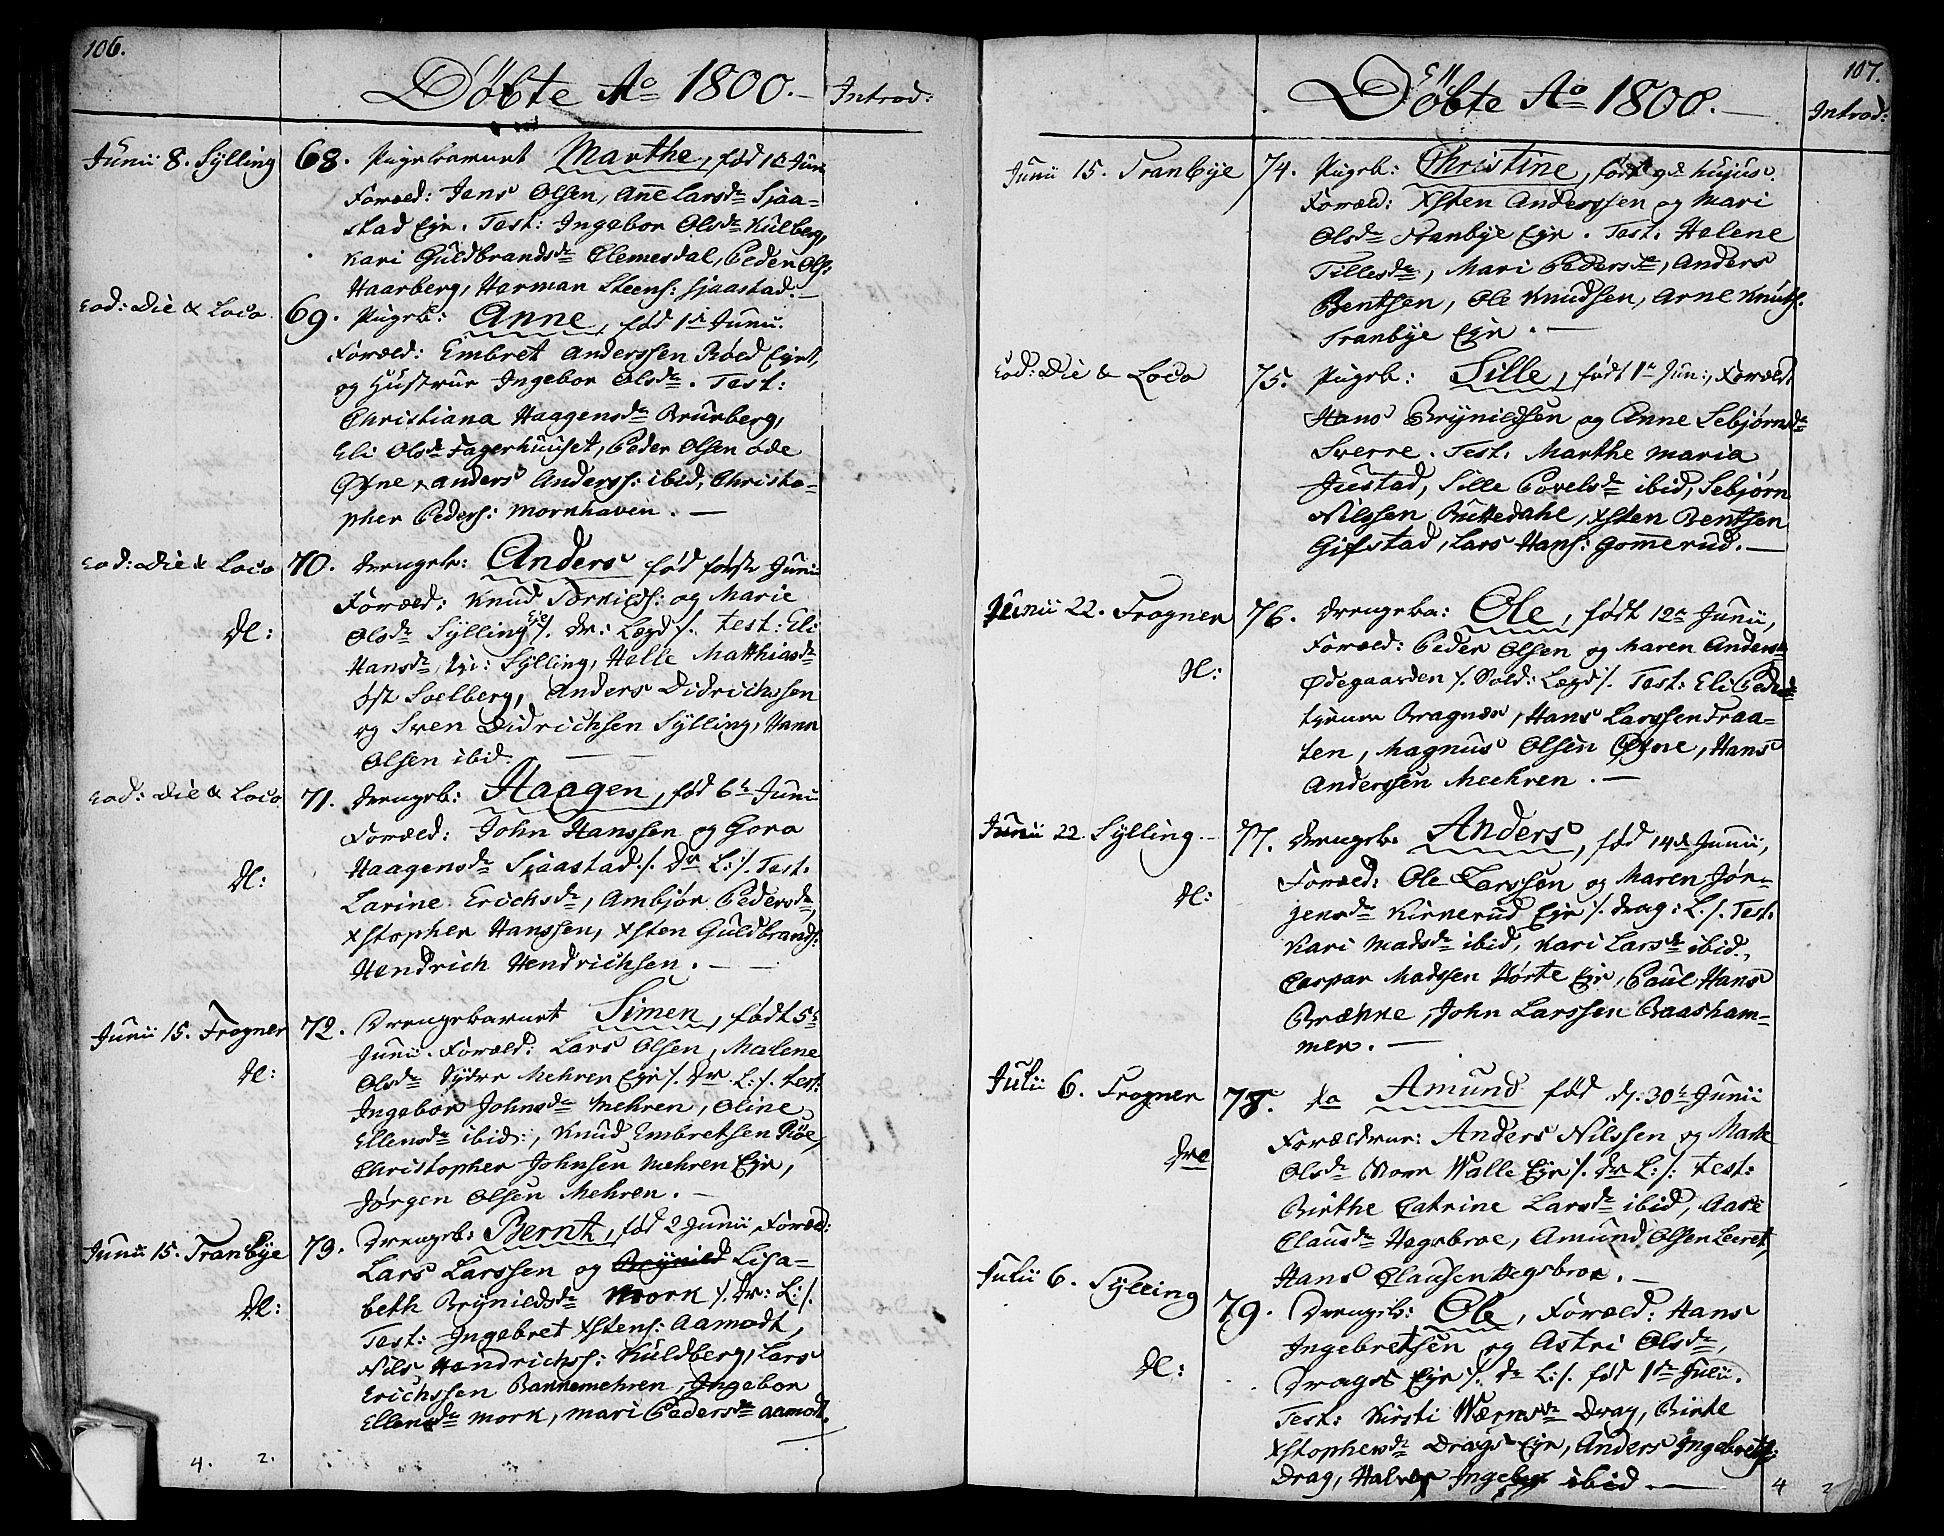 106.
Döbte Ao 1800.
Introd:
Junii 8. Sylling 68. Pigebarnet Marthe, fød 1ste Juni
Foræld: Jens Olsen, Anne Larsdr Sjaa-
stad Eyr. Test: Ingebor Olsdr Kulberg,
Kari Guldbrandsdr Clemesdal, Peder Ols:
Haarberg, Harman Steens: Sjaastad.
Eod: Die & Loco. 69. Pigeb: Anne, fød 1ste Junii.
Foræld: Embret Anderssen Röed Eyet,
og Hustrue Ingebor Olsdr. Test:
Christiana Haagensdr Brurberg,
Eli Olsdr Fagerhuuset, Peder Olsen öde
Qvne, Anders Anderss: ibid, Christo-
pher Peders: Mornhaven.
Eod: Die & Loco 70. Drengeb: Anders fød første Junii
Foræld: Knud Torkilds: og Marie
Olsdr Sylling Eje ./. Dr: Lægd ./. Test: Eli
dl:
Hansdr, Sylling, Helle Matthiasdr
Øst Soelberg, Anders Didrichssen
og Sven Didrichsen Sylling, Hans
Olsen ibid.
Eod: Die & Loco 71. Drengeb: Haagen, fød 6te Junii
Foræld: John Hanssen og Goro
Haagensdr Sjaastad ./. Dr L: ./. Test:
dl:
Larine Erichsdr, Ambjør Pedersdr,
Xstopher Hanssen, Xsten Guldbrands:
Hendrich Hendrichsen.
Junii 15. Frogner 72. Drengebarnet Simen, født 5te
Junii. Foræld: Lars Olsen, Malene
dl:
Olsdr Sydre Mehren Eyr ./. Dr L: ./. Test:
Ingebor Johnsdr Mehren, Oline
Ellensdr ibid:, Knud Embretsen Röe,
Christopher Johnsen Mehren Eyr,
Jørgen Olsen Mehren.
Junii 15. Tranbye 73. Drengeb: Bernt, fød 2 Junii Foræld:
Lars Larssen og Brynild Lisa-
dl:
beth Brynildsdr Mork ./. Dr: L: ./.
Test: Ingebret Xstens: Aamodt,
Nils Hendrichss: Kuldberg, Lars
Erichssen Bannemehren, Ingebor
Ellensdr Mork, Mari Pedersdr Aamodt.
4. 2.
107.
Döbte Ao 1800.
Introd:
Junii 15. Tranbye 74. Pigeb: Christine, født 9de hujus.
Foræld: Xsten Anderssen og Mari
Olsdr Tranbye Eyr. Test: Helene
Tillesdr, Mari Pedersdr, Anders
Bentsen, Ole Knudsen, Arne Knuts:
Tranbye Eyr.
Eod: Die & Loco 75. Pigeb: Sille, født 1ste Jun:, Foræld:
Hans Brynildssen og Anne Sebjørnsdr
Sverre. Test: Marthe Maria
Justad, Sille Povelsdr ibid, Sebjørn
Nilssen Buttedahl, Xsten Bentsen
Gifstad, Lars Hans: Gommerud.
Junii 22. Frogner 76. Drengeba: Ole, født 12te Junii,
Foræld: Peder Olsen og Maren Andersdr
dl:
Ødegaarden ./. Sold: Lægd ./. Test: Eli Pedersdr
Bragnæs, Hans Larssen Fraa-
ten, Magnus Olsen Qvne, Hans
Anderssen Meehren.
Junii 22 Sylling. 77. Drengeb: Anders, fød 14de Junii,
Foræld: Ole Larssen og Maren Jør-
dl:
gensdr Kirnerud Eyr ./. Drag: L: ./. Test:
Kari Madsdr ibid, Kari Larsdr ibid.,
Caspar Madssen Hörte Eyr, Paul Hans
Brække, John Larssen Baasham-
mer.
Julii 6. Frogner 78. do Amund fød d: 30te Junii
Forældrene: Anders Nilssen og Marte
dre
Olsdr Walle Eyr ./. Dr L: ./: Test:
Birthe Catrine Larsdr ibid, Aase
Clausdr Hegsbroe, Amund Olsen Leeret,
Hans Clausen Hegsbroe.
Julii 6. Sylling 79. Drengeb: Ole, Foræld: Hans
Ingebretsen og Astri Olsdr,
dl:
Drags Eyr ./. Dr L: ./. fød 1ste Julii.
Test: Kirsti Wærnsdr Drag, Birte
Xstophersdr Drags Eyr, Anders Ingebretss:
Drag, Halvor Ingebr ibid
4 2